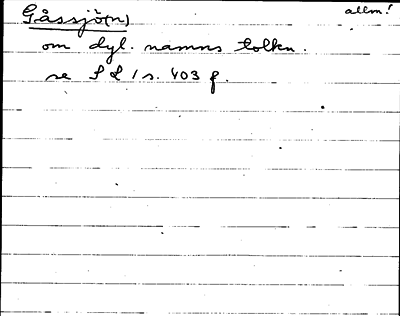 Gåssjö(n)
allm!
om dyl. namns tolkn.
se S L 1 s. 403 f.